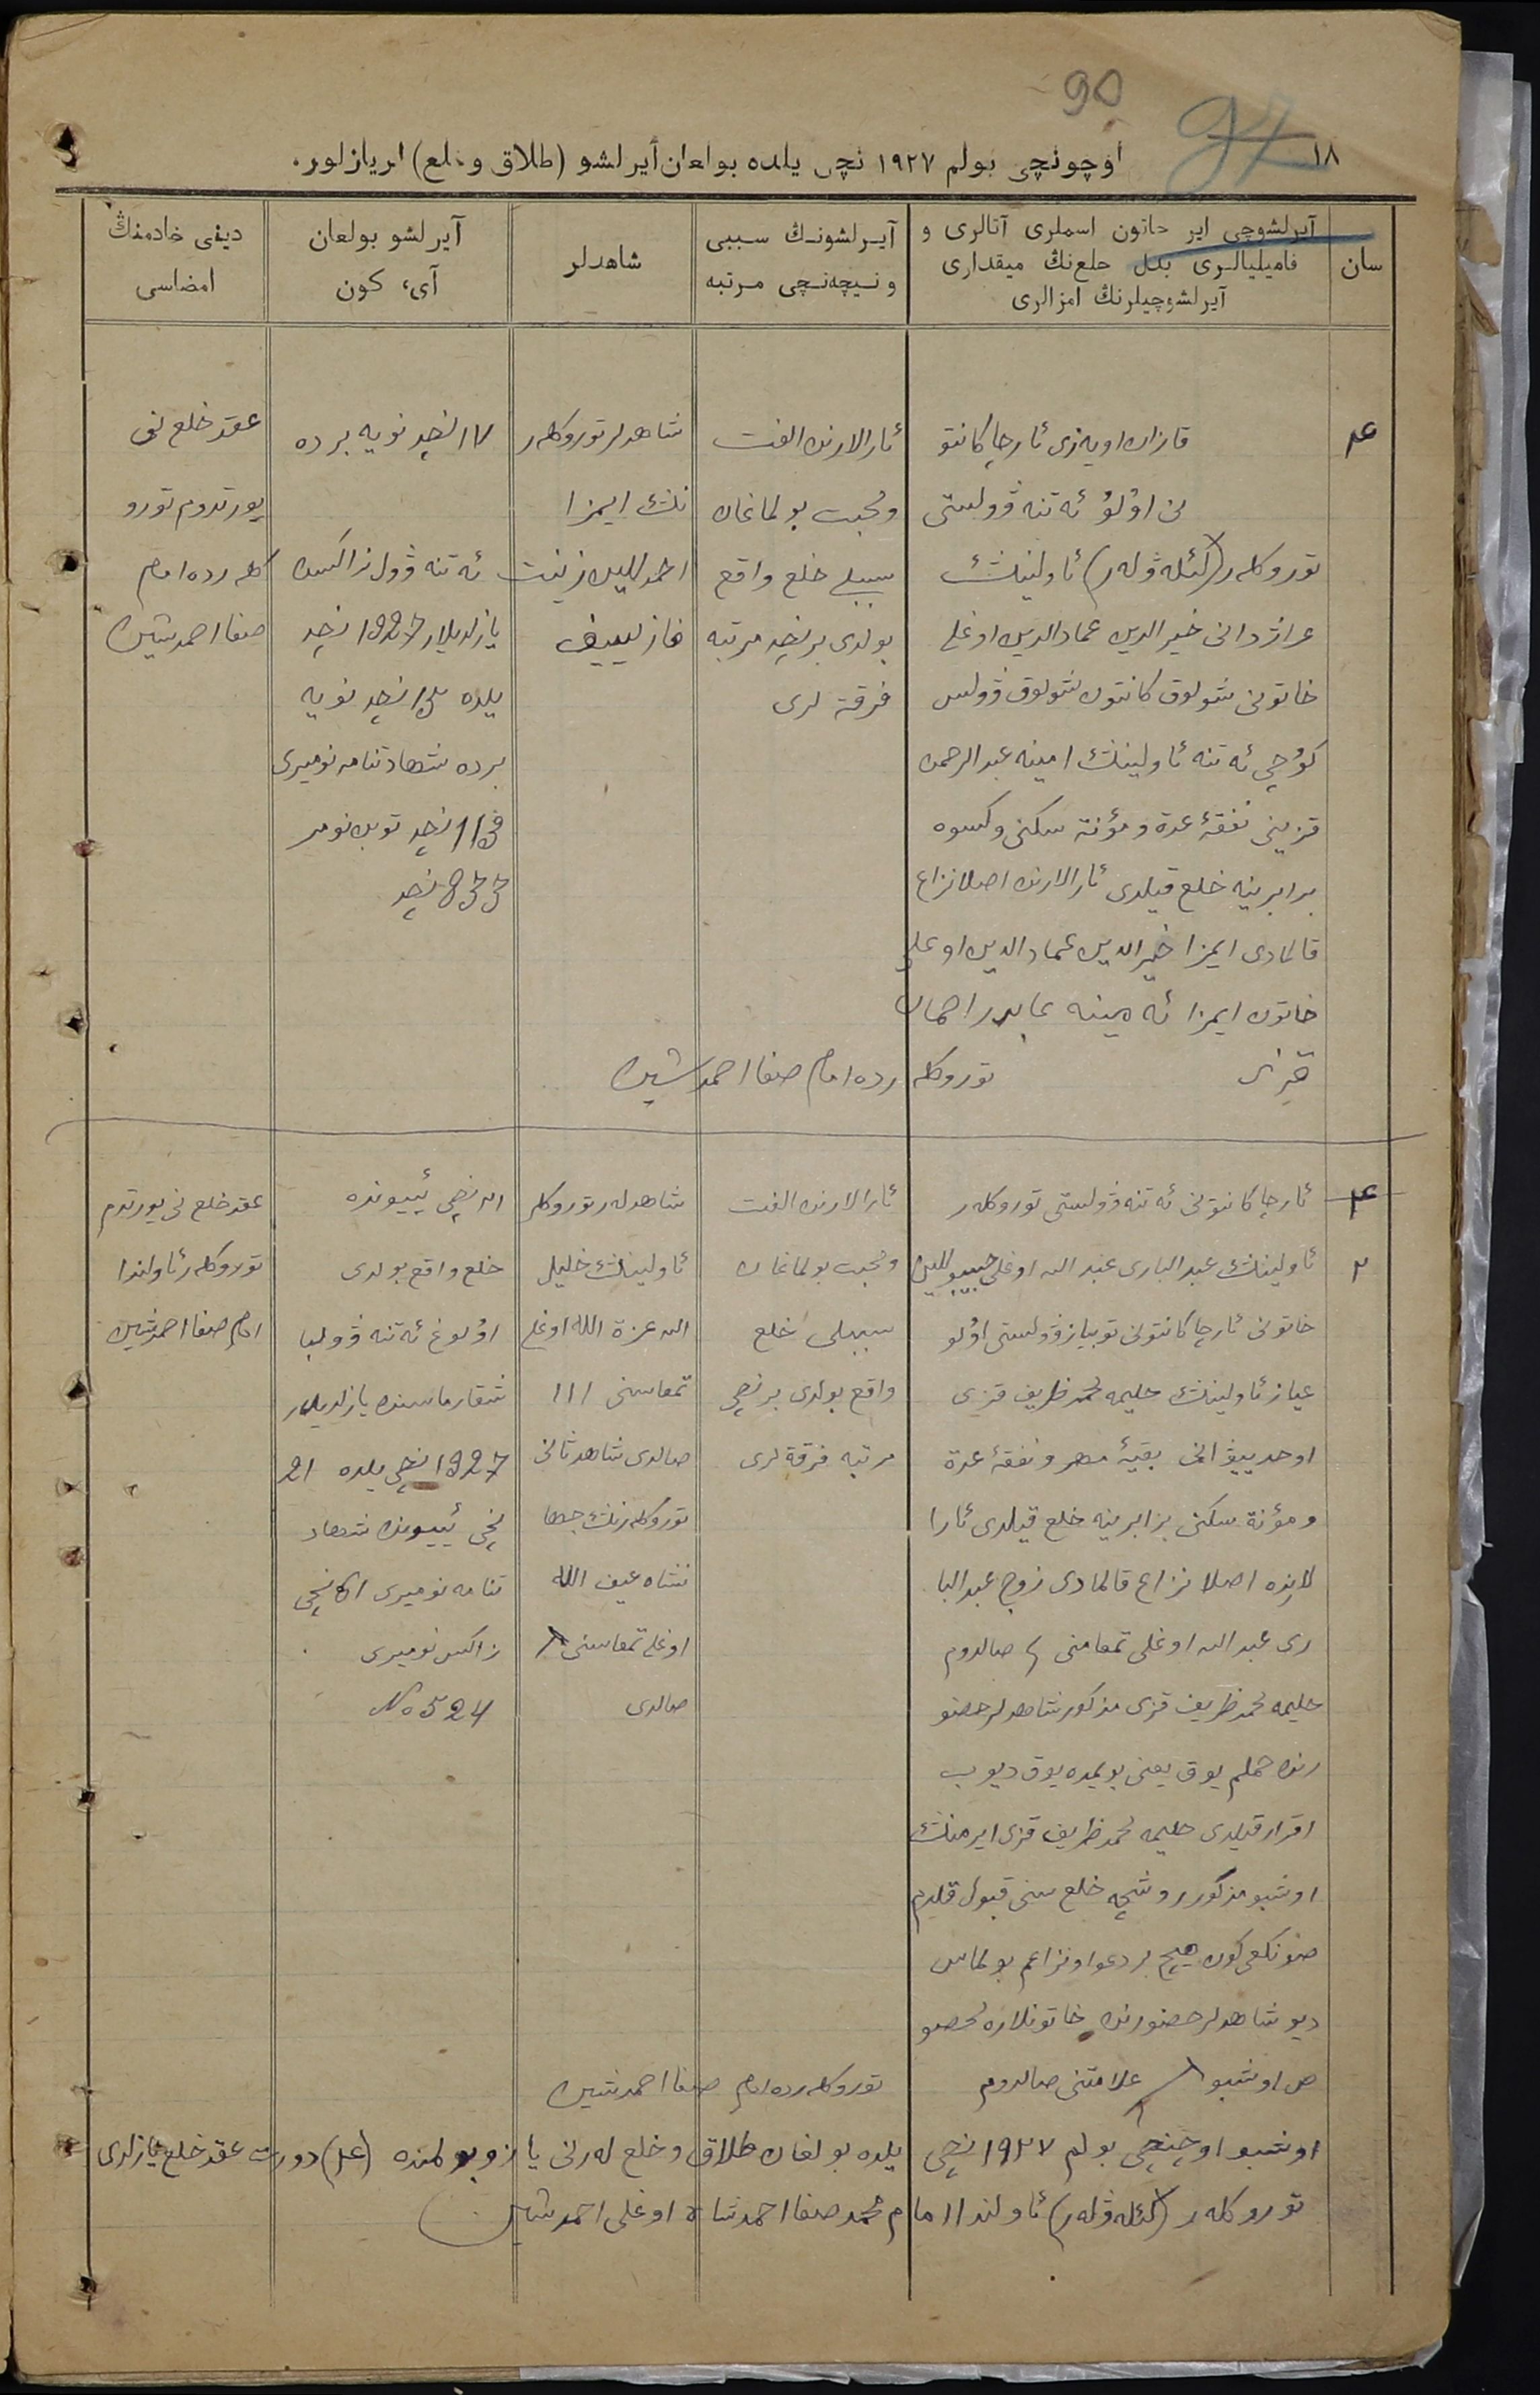 90
97
١٨
اوچونچی بولم ١٩٢٧ نچی یلده بولعان آیرلشو (طلاق و خلع) لر یازلور.
سان
آیرلشوچی ایر حاتون اسملری آتالری و
فامیلیالری بدل خلع‌نڭ میقداری
آیرلشوچیلرنڭ امزالری
آیرلشونڭ سببی
و نیچه‌نچی مرتبه
شاهدلر
آیرلشو بولعان
آی، کون
دینی خادمنڭ
امضاسی
قازان اویه‌زی ئارچا کانتو
نی اۇلۇ ئه‌تنه ڤولستی
توروکلەر (کئله‌ڤله‌ر) ئاولینڭ
خیرالدین عمادالدین اوغلی
خاتونی شولوق کانتون شولوق ڤولس
کۇچی ئه‌تنه ئاولینڭ امینه عبدالرحمن
قزینی نفقهٔ عدة و مؤنة سکنی وکسوه
برابرینه خلع قیلدی ئارالارنده اصلا نزاع
قالمادی ایمزا خیرالدین عمادالدین اوغلی
خاتون ایمزا ئه‌مینه عابدراحمان
قزی
توروکله‌رده امام صفا احمدشین
ئارالارنده الفت
ومحبت بولماغان
سببلی خلع واقع
بولدی برنچی مرتبه
فرقة لری
شاهدلر توروکلەر
نڭ ایمزا
١٧ نچی نویه‌برده
ئه‌تنه ڤول زاکسن
یازلدیلار 1927 نچی
یلده نچی نویه
برده شهادتنامه نومیری
نچی توبن نومر
نچی
عقد خلع نی
یورتدوم تورو
کله‌رده امام
صفا احمدشین
ئارچا کانتونی ئه‌تنه ڤولستی توروکلەر
ئاولینڭ عبدالباری عبدالله اوغلی حبیبوللین
خاتونی ئارچا کانتونی توبیاز ڤولستی اۇلو
عیاز ئاولینڭ حلیمه محمدظریف قزی
اوحدییڤانی بقیهٔ مهر و نفقهٔ عدة
و مؤنة سکنی برابرینه خلع قیلدی ئارا
لارنده اصلا نزاع قالمادی زوج عبدالبا
ری عبدالله اوغلی تمغامنی صالدوم
حلیمه محمدظریف قزی مذکور شاهدلر حضو
رنده حملم یوق یعنی بویمده یوق دیوب
اقرار قیلدی حلیمه محمدظریف قزی ایرمنڭ
اوشبو مذکور روشچه خلع سنی قبول قلدم
صونکغی کون هیچ بر دعوا ونزاعم بولماس
دیو شاهدلر حضورنده خاتونلاره مخصو
ص اوشبو علامتنی صالدوم
توروکله‌رده امام صفا احمدشین
ئارالارنده الفت
ومحبت بولماغان
سببلی خلع
واقع بولدی برنچی
مرتبه فرقة لری
شاهدلەر توروکلر
ئاولینڭ خلیل
الله عزة الله اوغلی
تمغاسنی ااا
صالدی شاهد ثانی
توروکله‌رنڭ جها
نشاه عیف الله
اوغلی تمغاسنی
صالدی
نچی ئییونده
خلع واقع بولدی
اۇلوغ ئه‌تنه ڤولبا
شقارماسنده یازلدیلار
1927 نچی یلده 21
نچی ئییونده شهاد
تنامه نومیری نچی
زاکس نومیری
№ 524
عقد خلع نی یورتدم
توروکلەر ئاولندا
امام صفا احمدشین
اوشبو اوچنچی بولم ١٩٢٧ نچی یلده بولغان طلاق و خلع له‌رنی یازو بولمنده (٤) دورت عقد خلع یازلدی
توروکلەر (کئله‌ڤله‌ر) ئاولندا امام محمدصفا احمدشاه اوغلی احمدشین